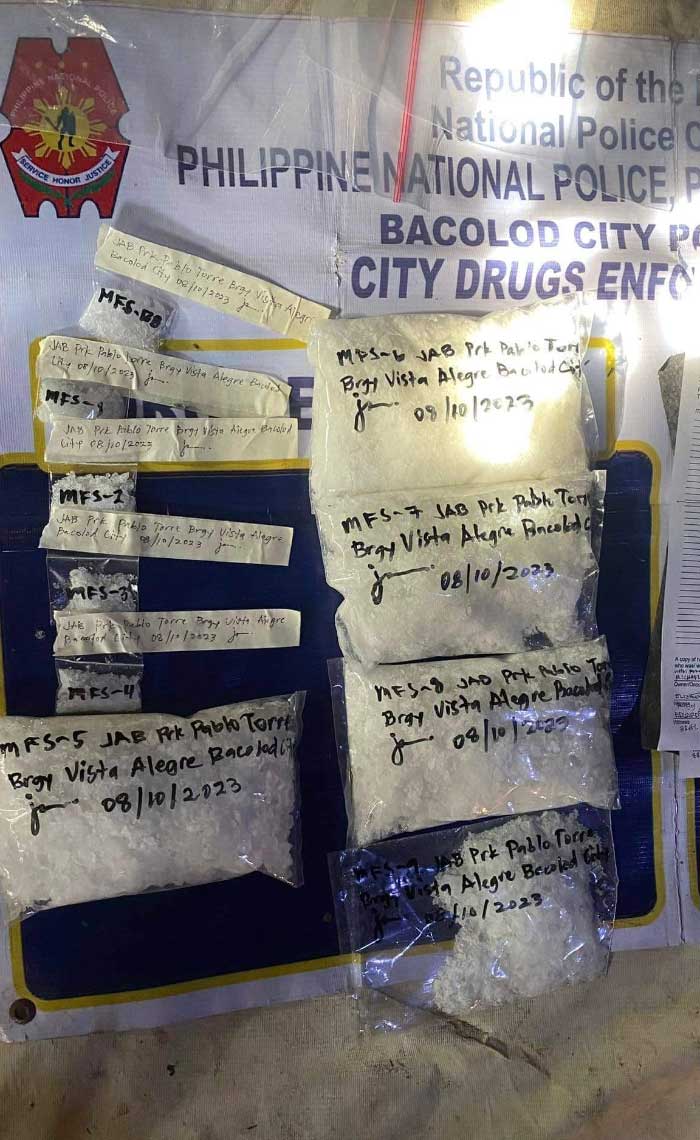 PHILIPPINE NATIONAL POLICE
SERVICE HONOR JUSTICE
Republic of the
National Police
PHILIPPINE NATIONAL POLICE,
BACOLOD CITY
CITY DRUGS
JAB Prk Pablo Torre Brgy Vista Alegre
Bacolod City 08/10/2023
MFS-BB
JAB Prk Pablo Torre Brgy Vista Alegre Bacolod
City 08/10/2023
JAB Prk Pablo Torre Brgy Vista Alegre Bacolod
City 08/10/2023
MFS-2
JAB Prk Pablo Torre Brgy Vista Alegre
Bacolod City 08/10/2023
MFS-3
JAB Prk Pablo Torre Brgy Vista Alegre
Bacolod City 08/10/2023
MFS-4
MFS-5 JAB Prk Pablo Torre
Brgy Vista Alegre Bacolod City
08/10/2023
MFS-6 JAB Prk Pablo Torr
Brgy Vista Alegre Bacolod City
08/10/2023
MFS-7 JAB Prk Pablo Torr
Brgy Vista Alegre Bacolod City
08/10/2023
MFS-8 JAB Prk Pablo Torr
Brgy Vista Alegre Bacolod City
08/10/2023
MFS-9 JAB Prk Pablo Torre
Brgy Vista Alegre Bacolod City
08/10/2023
A copy of